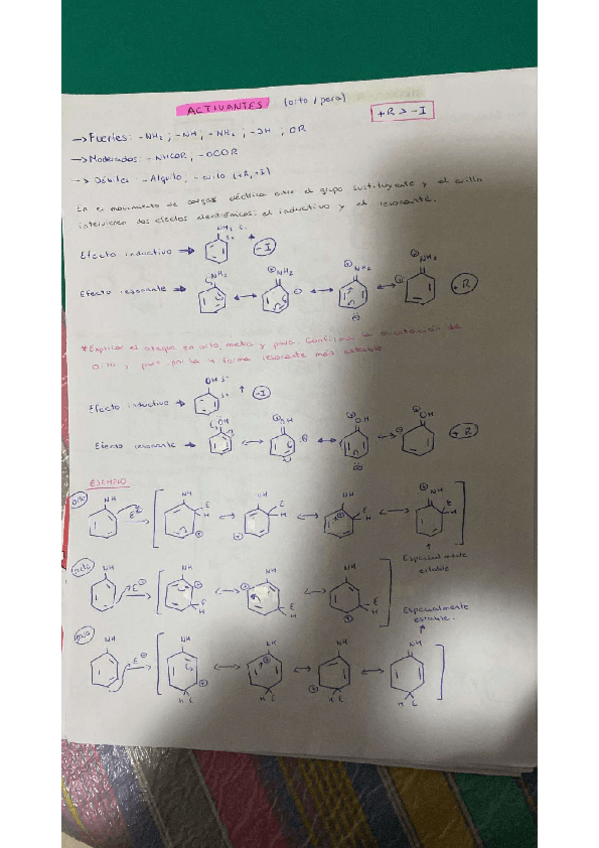 ACTIVANTES (orto / para)
+R > -I
→ Fuertes: -NH₂, -NH, -NH₂, -OH, OR
→ Moderados: -NHCOR, -OCOR
→ Débiles: -Alquilo, -arilo (+R, +I)
En el movimiento de cargas eléctrica entre el grupo sustituyente y el anillo
intervienen dos efectos electrónicos: el inductivo y el resonante.
NH₂ δ-
δ+
Efecto inductivo → -I
NH₂ NH₂ NH₂ NH₂
Efecto resonante → +R
*Explicar el ataque en orto, meta y para. Confirmar la orientación de
orto y para por la 4 forma resonante más estable
OH δ-
δ+
Efecto inductivo → -I
OH OH OH OH
Efecto resonante → +R
EJEMPLO
orto NH E⊕ NH E H OH E H NH E H NH E H
Especialmente
estable
meta NH E⊕ NH E H NH E H NH E H
Especialmente
estable.
para NH E⊕ NH NH NH NH
H E H E H E H E